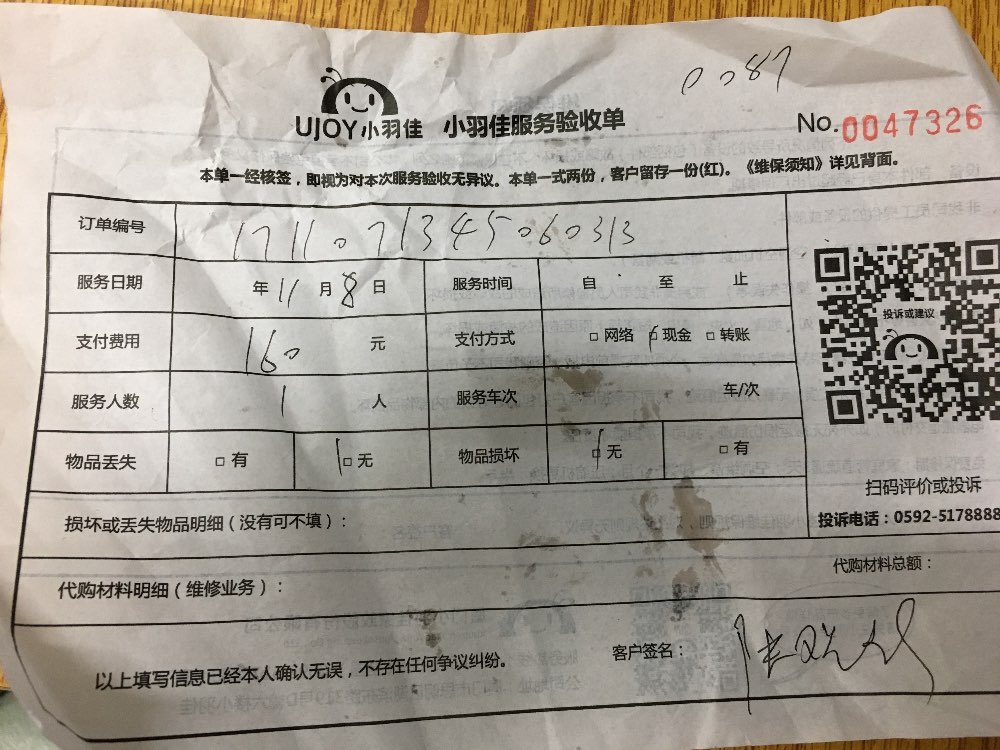 0087
UJOY小羽佳 小羽佳服务验收单
No.0047326
本单一经核签，即视为对本次服务验收无异议。本单一式两份，客户留存一份(红)。《维保须知》详见背面。
订单编号 1711071345060313
服务日期 年11月8日 服务时间 自 至 止
投诉或建议
支付费用 160 元 支付方式 □网络 □现金 □转账
服务人数 1 人 服务车次 车/次
物品丢失 □有 □无 物品损坏 □无 □有
扫码评价或投诉
损坏或丢失物品明细（没有可不填）：
投诉电话：0592-5178888
代购材料明细（维修业务）：
代购材料总额：
以上填写信息已经本人确认无误，不存在任何争议纠纷。
客户签名：